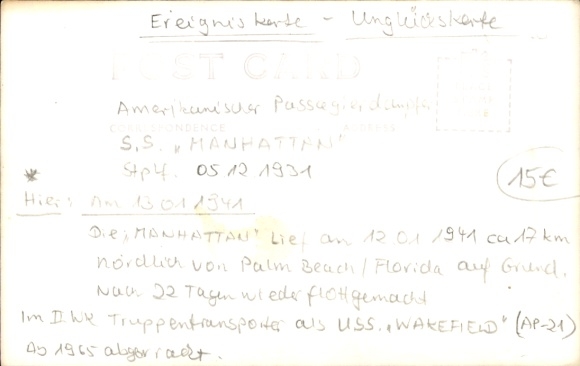 Ereigniskarte - Unglückskarte
POST CARD
Amerikanischer Passagierdampfer
CORRESPONDENCE ADDRESS
S.S. „MANHATTAN"
Stplf. 05 12 1931
* 15€
Hier: Am 13 01 1941
Die „MANHATTAN" lief am 12.01 1941 ca 17 km
nördlich von Palm Beach / Florida auf Grund.
Nach 22 Tagen wieder flottgemacht
Im II.WK Truppentransporter als USS. „WAKEFIELD" (AP-21)
Ab 1965 abgewrackt.